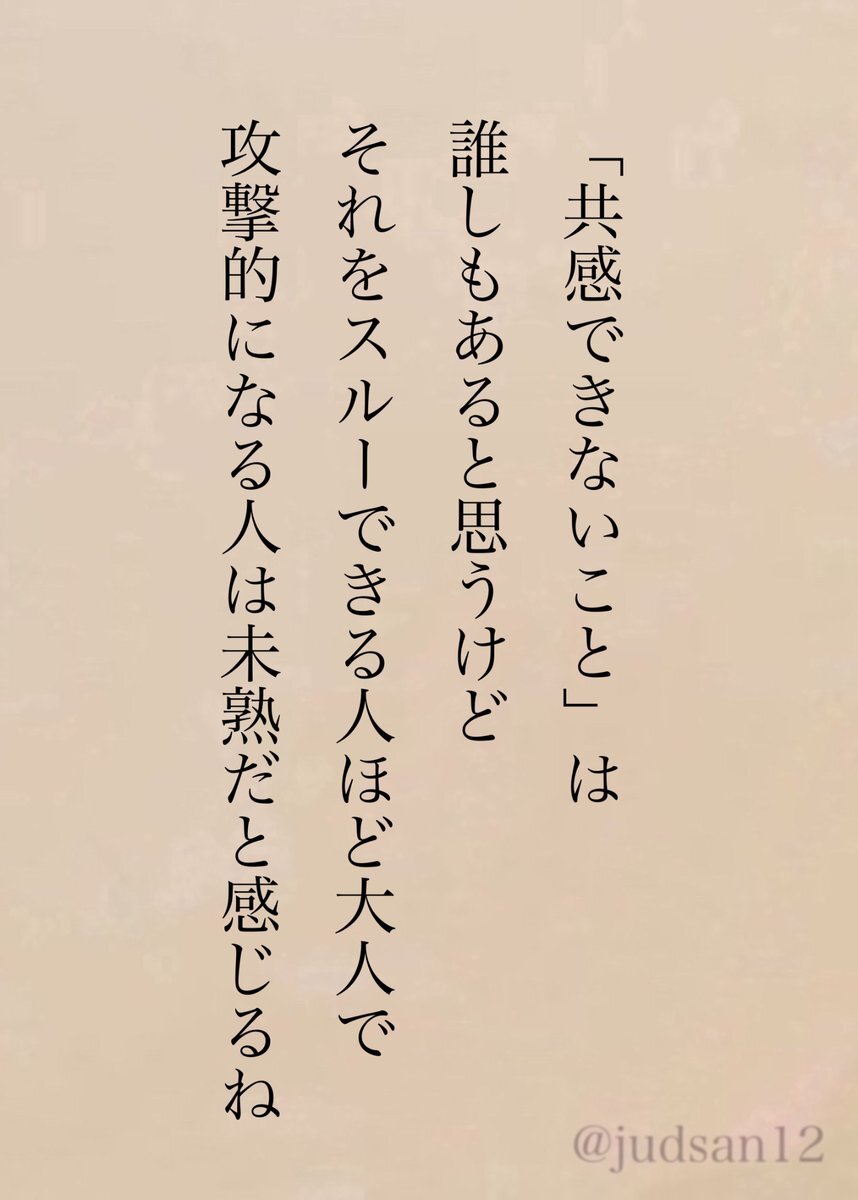 「共感できないこと」は
誰しもあると思うけど
それをスルーできる人ほど大人で
攻撃的になる人は未熟だと感じるね
@judsan12